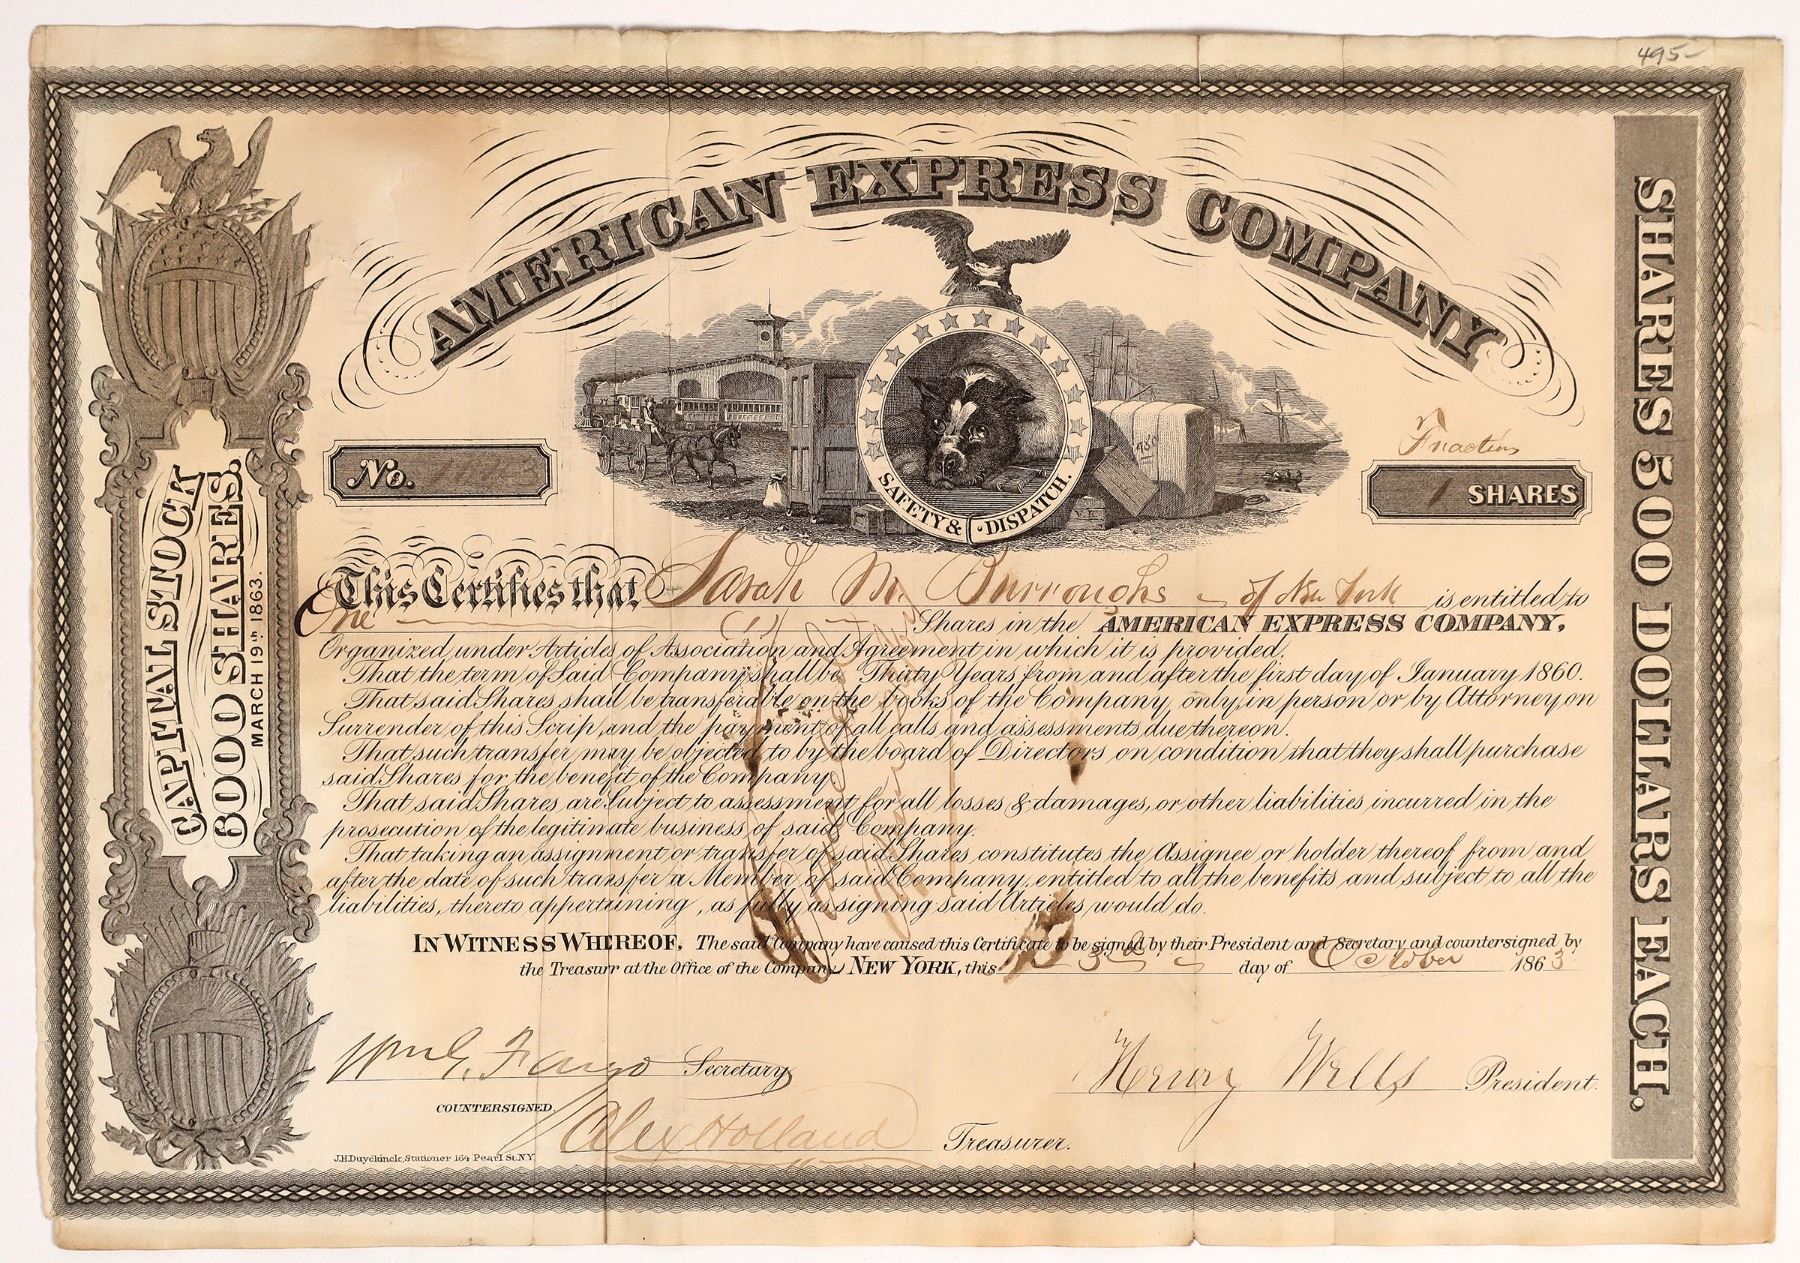 495
AMERICAN EXPRESS COMPANY
SAFETY & DISPATCH.
No.
Fraction
1 SHARES
CAPITAL STOCK
6000 SHARES.
MARCH 19th 1863.
SHARES 500 DOLLARS EACH.
This Certifies that Sarah M. Burroughs of New York is entitled to
One Shares in the AMERICAN EXPRESS COMPANY,
Organized under Articles of Association and Agreement in which it is provided.
That the term of Said Company shall be Thirty Years from and after the first day of January 1860.
That said Shares shall be transferable on the books of the Company, only in person or by Attorney on
Surrender of this Scrip, and the payment of all calls and assessments due thereon.
That such transfer may be objected to by the board of Directors on condition that they shall purchase
said Shares for the benefit of the Company.
That said Shares are Subject to assessment for all losses & damages, or other liabilities incurred in the
prosecution of the legitimate business of said Company.
That taking an assignment or transfer of said Shares constitutes the Assignee or holder thereof from and
after the date of such transfer a Member of said Company, entitled to all the benefits and subject to all the
liabilities, thereto appertaining, as fully as signing said Articles would do.
IN WITNESS WHEREOF, The said Company have caused this Certificate to be signed by their President and Secretary and countersigned by
the Treasurr at the Office of the Company NEW YORK, this 3d day of October 1863
Wm G. Fargo Secretary
Henry Wells President.
COUNTERSIGNED,
Alex Holland Treasurer.
J.H.Duyckinck, Stationer 164 Pearl St. N.Y.